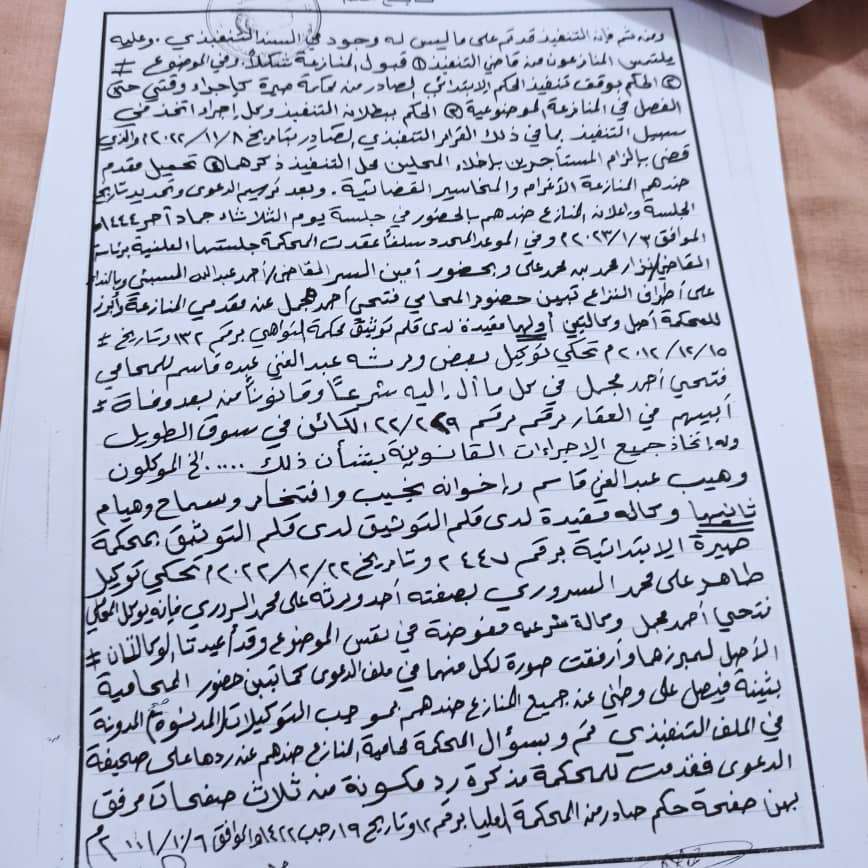 ومن ثم فإن التنفيذ قد تم على ما ليس له وجود في السند التنفيذي . وعليه
يلتمس المنازعون من قاضي التنفيذ ① قبول المنازعة شكلاً وفي الموضوع #
② الحكم بوقف تنفيذ الحكم الابتدائي الصادر من محكمة صيرة كإجراء وقتي حتى
الفصل في المنازعة الموضوعية ③ الحكم ببطلان التنفيذ وكل إجراء اتخذ في
سبيل التنفيذ بما في ذلك القرار التنفيذي الصادر بتاريخ ٨/١١/٢٠٢٢م والذي
قضى بإلزام المستأجرين بإخلاء المحلين محل التنفيذ ذكرهما ④ تحميل مقدم
ضدهم المنازعة الأغرام والمخاسير القضائية . وبعد ترسيم الدعوى وتحديد تاريخ
الجلسة وإعلان المنازع ضدهم بالحضور في جلسة يوم الثلاثاء جماد آخر ١٤٤٤هـ
الموافق ٣/١/٢٠٢٣م وفي الموعد المحدد سلفاً عقدت المحكمة جلستها العلنية برئاسة
القاضي/ نزار محمد بن محمد علي وبحضور أمين السر القاضي/ أحمد عبدالله السبتي وبالنداء
على أطراف النزاع تبين حضور المحامي فتحي أحمد مجمل عن مقدمي المنازعة وأبرز
للمحكمة أصل وكالتين أولهما مقيدة لدى قلم توثيق محكمة التواهي برقم ١٣٢ وتاريخ
١٥/١٢/٢٠١٢م تحكي توكيل بعض ورثة عبدالغني عبده قاسم للمحامي
فتحي أحمد مجمل في كل ما آل إليه شرعاً وقانوناً من بعد وفاة
أبيهم في العقار برقم ٢٢/٢٦٩ الكائن في سوق الطويل
وله اتخاذ جميع الإجراءات القانونية بشأن ذلك ..... الخ الموكلون
وهيب عبدالغني قاسم وإخوانه نجيب وافتخار وسماح وهيام
ثانيهما وكالة مقيدة لدى قلم التوثيق لدى قلم التوثيق بمحكمة
صيرة الابتدائية برقم ٢٤٤٧ وتاريخ ٢٢/١٢/٢٠٢٢م تحكي توكيل
طاهر علي محمد السروري بصفته أحد ورثة علي محمد السروري فإنه يوكل المحامي
فتحي أحمد مجمل وكالة شرعية مفوضة في نفس الموضوع وقد أعيدتا الوكالتان #
الأصل لمبرزهما وأرفقت صورة لكل منهما في ملف الدعوى كما تبين حضور المحامية
بثينة فيصل علي وطني عن جميع المنازع ضدهم بموجب التوكيلات المدونة
في الملف التنفيذي ثم وبسؤال المحكمة لمحامية المنازع ضدهم عن ردها على صحيفة
الدعوى فقدمت للمحكمة مذكرة رد مكونة من ثلاث صفحات مرفق
بهن صفحة حكم صادر من المحكمة العليا برقم ١٢ وتاريخ ١٩ رجب ١٤٢٢ والموافق ٦/١٠/٢٠٠١م